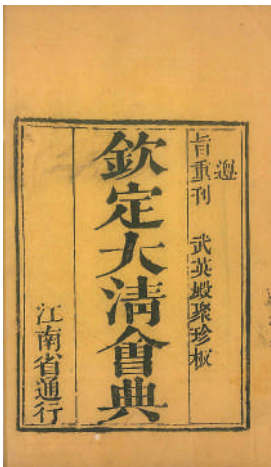 遵
旨重刊 武英殿聚珍板
欽定大清會典
江南省通行